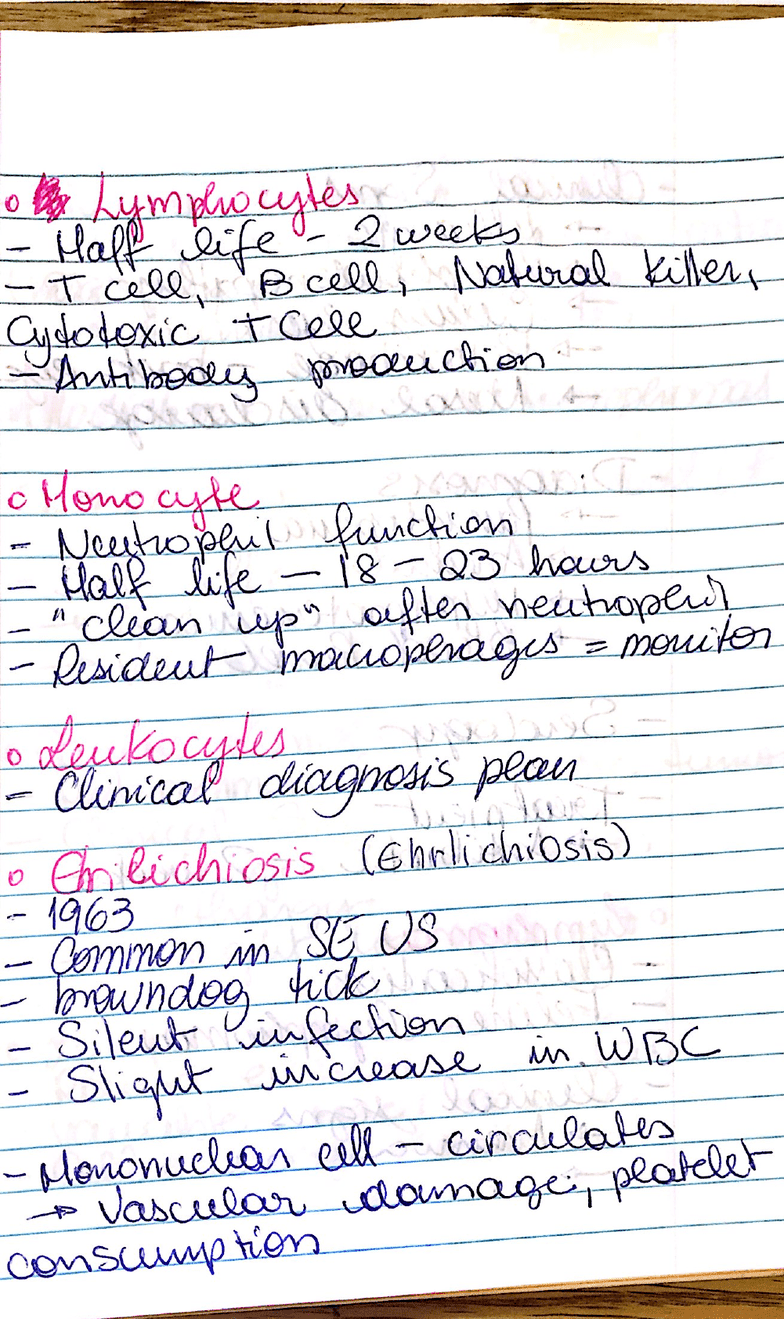 o Lymphocytes
- Half life - 2 weeks
- T cell, B cell, Natural killer,
Cytotoxic T Cell
- Antibody production
o Monocyte
- Neutrophil function
- Half life - 18 - 23 hours
- "clean up" after neutrophil
- Resident macrophages = monitor
o Leukocytes
- Clinical diagnosis plan
o Ehrlichiosis (Ehrlichiosis)
- 1963
- Common in SE US
- browndog tick
- Silent infection
- Slight increase in WBC
- Mononuclear cell - circulates
→ Vascular damage, platelet
consumption